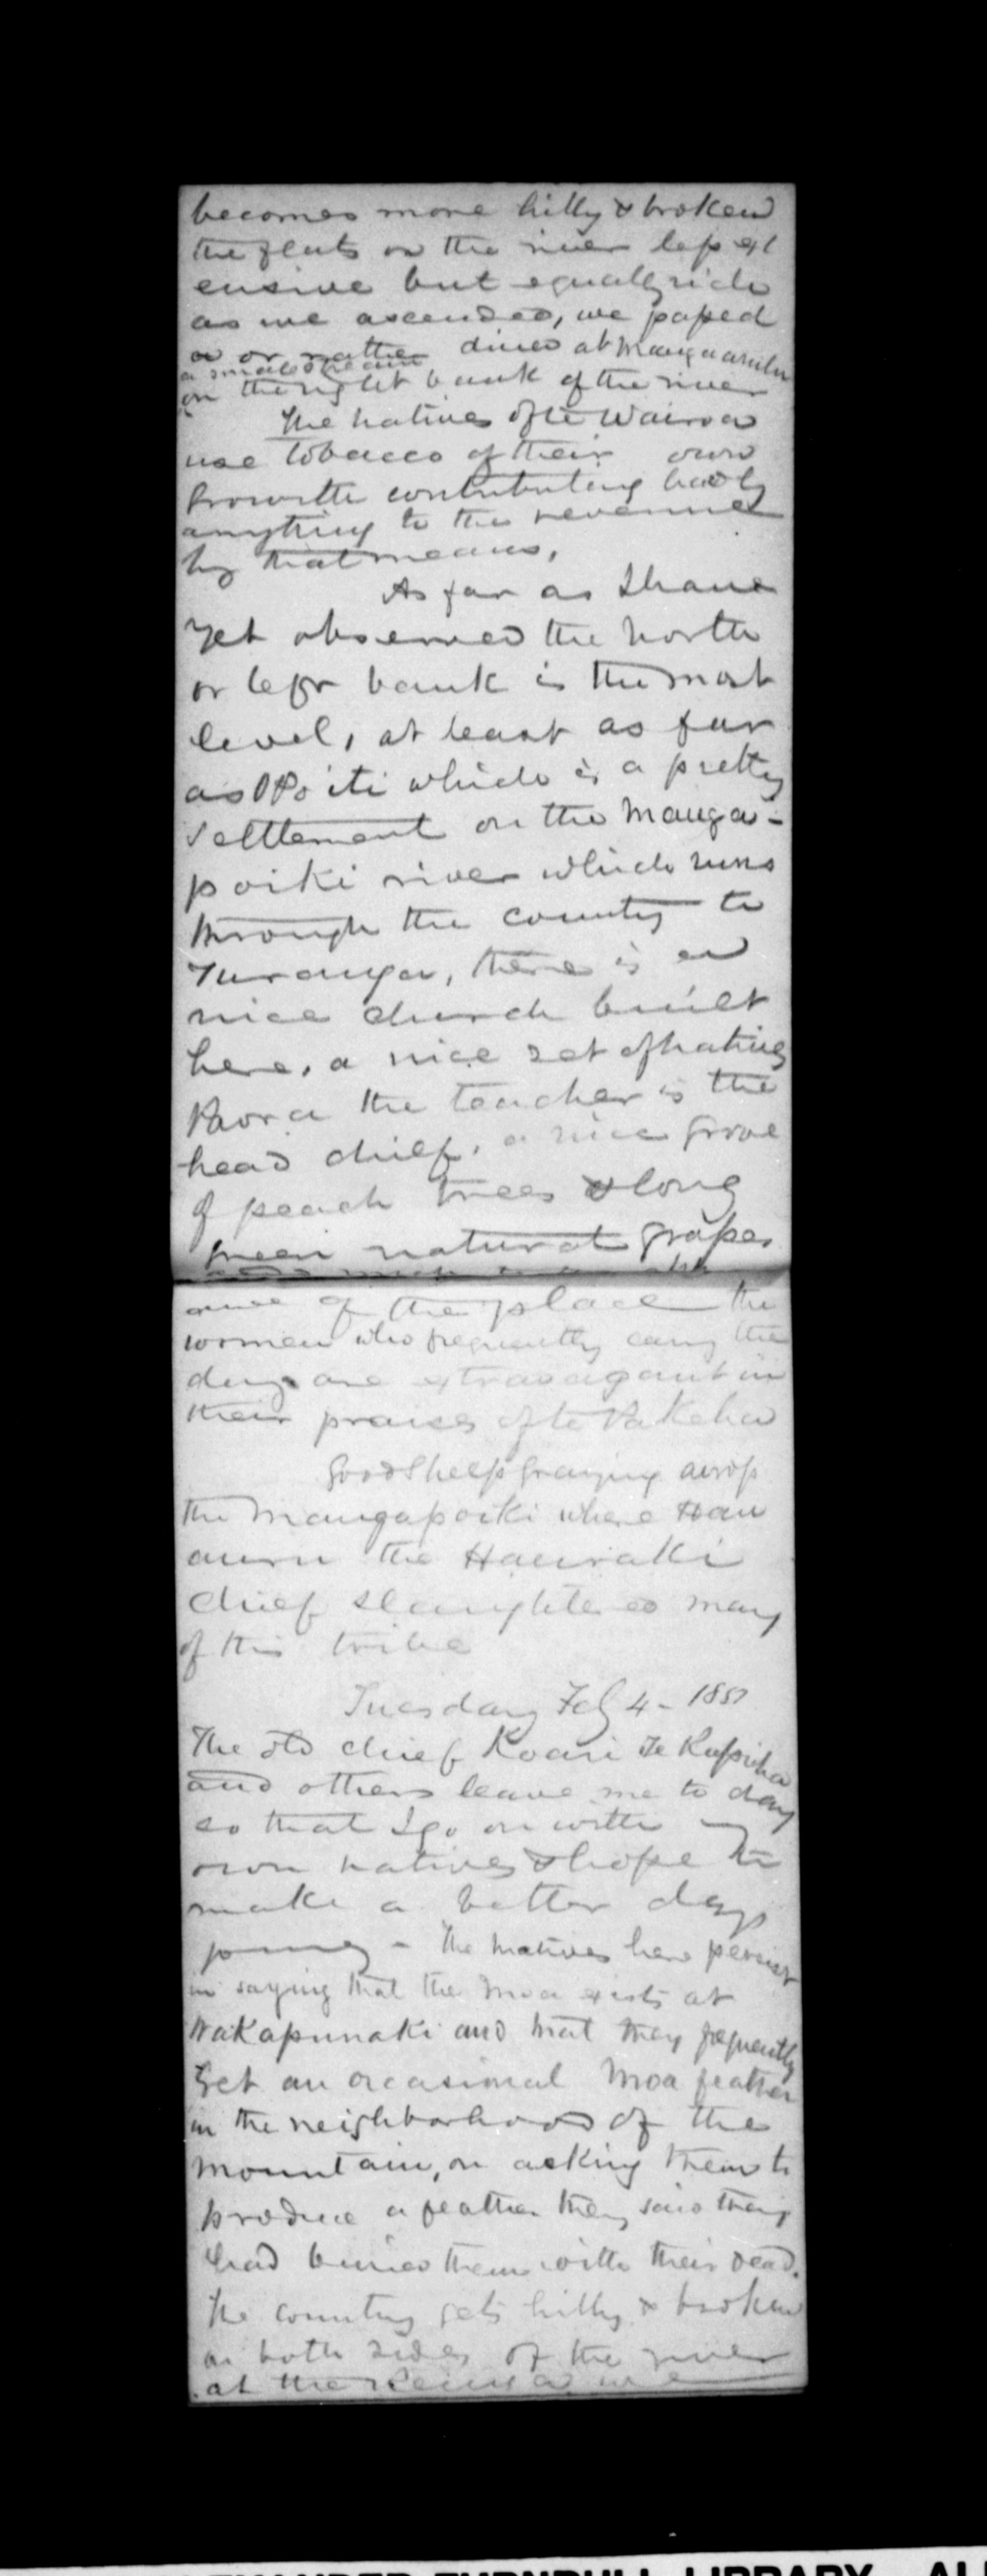 becomes more hilly & broken
the flats on the river less ext
ensive but equally rich
as we ascended, we passed
or rather dined at
a small stream
on the right bank of the river
The natives of te Wairoa
use tobacco of their own
growth contributing hardly
anything to the revenue
by that means,
As far as I have
yet observed the north
or left bank is the most
level, at least as far
as Opoiti which is a pretty
settlement on the Manga-
poiki river which runs
through the country to
Turanga, there is a
nice church built
here, a nice set of natives
Paora the teacher is the
head chief, a nice grove
of peach trees & long
green natural grasses
ance of the place the
women who frequently carry the
are extravagant in
their praises of te Pakeha
Good Sheep grazing across
the Mangapoiki where Hau
auru the Hauraki
chief slaughtered many
of this tribe
Tuesday Feb 4 - 1851
The old chief Koari Te
and others leave me to day
so that I go on with my
own natives & hope to
make a better days
journey - The natives here persist
in saying that the moa exists at
Wakapunaki and that they frequently
Get an occasional Moa feather
in the neighborhood of the
mountain, on asking them to
produce a feather they said they
had buried them with their dead.
The country gets hilly & broken
on both sides of the river
at the
TURNBULL LIBRARY